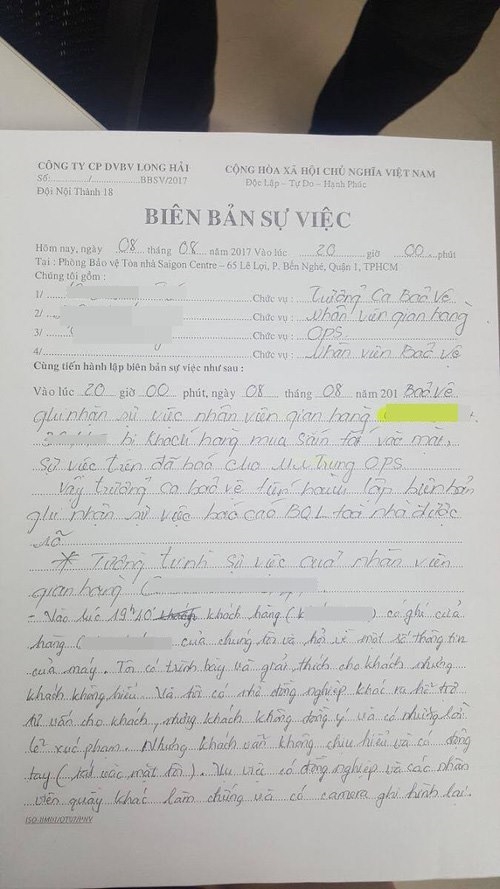 CÔNG TY CP DVBV LONG HẢI
CỘNG HÒA XÃ HỘI CHỦ NGHĨA VIỆT NAM
Số:............/..................BBSV/2017
Độc Lập – Tự Do – Hạnh Phúc
Đội Nội Thành 18
BIÊN BẢN SỰ VIỆC
Hôm nay, ngày 08 tháng 08 năm 2017 Vào lúc 20 giờ 00 phút
Tại : Phòng Bảo vệ Tòa nhà Saigon Centre – 65 Lê Lợi, P. Bến Nghé, Quận 1, TPHCM
Chúng tôi gồm :
1/ Chức vụ : Trưởng Ca Bảo Vệ
2/ Chức vụ : Nhân viên gian hàng
3/ Chức vụ : OPS
4/ Chức vụ : Nhân viên Bảo vệ
Cùng tiến hành lập biên bản sự việc như sau :
Vào lúc 20 giờ 00 phút, ngày 08 tháng 08 năm 201 Bảo vệ
ghi nhận sự việc nhân viên gian hàng
bị khách hàng mua sắm tát vào mặt,
sự việc trên đã báo cho Mr Trung OPS
Vậy trưởng ca bảo vệ tiến hành lập biên bản
ghi nhận sự việc báo cáo BQL tòa nhà được
rõ
* Tường trình sự việc quả nhân viên
gian hàng (
- Vào lúc 19h40 khách khách hàng (k ) có ghé cửa
hàng ( của chúng tôi và hỏi về một số thông tin
của máy. Tôi có trình bày và giải thích cho khách nhưng
khách không hiểu. Và tôi có nhờ đồng nghiệp khác ra hỗ trợ
tư vấn cho khách, nhưng khách không đồng ý và có những lời
lẽ xúc phạm. Nhưng khách vẫn không chịu hiểu và có động
tay ( tát vào mặt tôi ). Vụ việc có đồng nghiệp và các nhân
viên quầy khác làm chứng và có camera ghi hình lại.